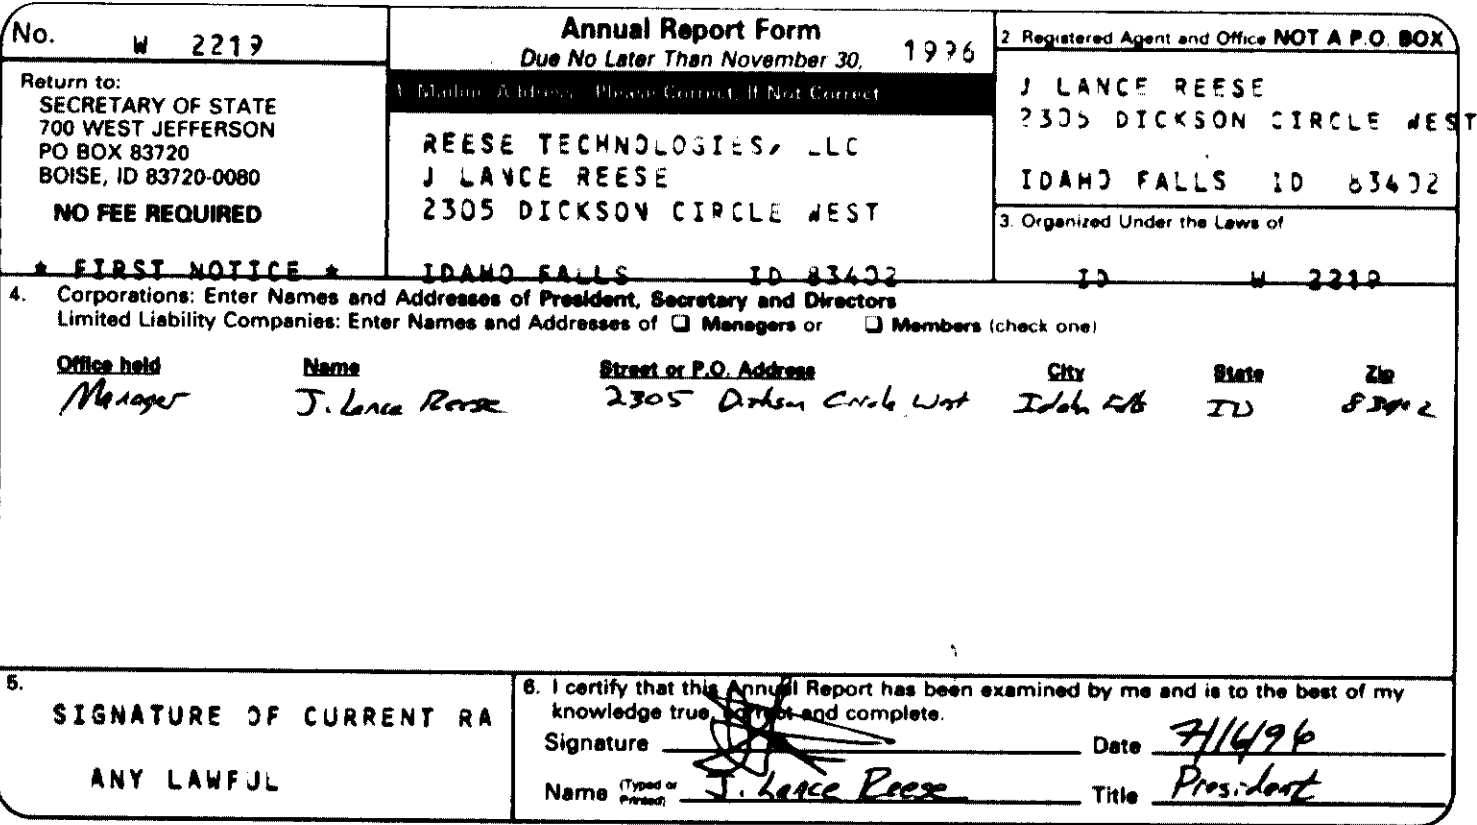 No. W 2219
Return to:
SECRETARY OF STATE
700 WEST JEFFERSON
PO BOX 83720
BOISE, ID 83720-0080
NO FEE REQUIRED
* FIRST NOTICE *
Annual Report Form
Due No Later Than November 30, 1996
1. Mailing Address - Please Correct, If Not Correct
REESE TECHNOLOGIES, LLC
J LANCE REESE
2305 DICKSON CIRCLE WEST
IDAHO FALLS ID 83402
2 Registered Agent and Office NOT A P.O. BOX
J LANCE REESE
2305 DICKSON CIRCLE WEST
IDAHO FALLS ID 83402
3. Organized Under the Laws of
ID W 2219
4. Corporations: Enter Names and Addresses of President, Secretary and Directors
Limited Liability Companies: Enter Names and Addresses of ❑ Managers or ❑ Members (check one)
Office held Name Street or P.O. Address City State Zip
Manager J. Lance Reese 2305 Dickson Circle West Idaho Falls ID 83402
5.
SIGNATURE OF CURRENT RA
ANY LAWFUL
6. I certify that this Annual Report has been examined by me and is to the best of my
knowledge true, correct and complete.
Signature Date 7/16/96
Name (Typed or Printed) J. Lance Reese Title President